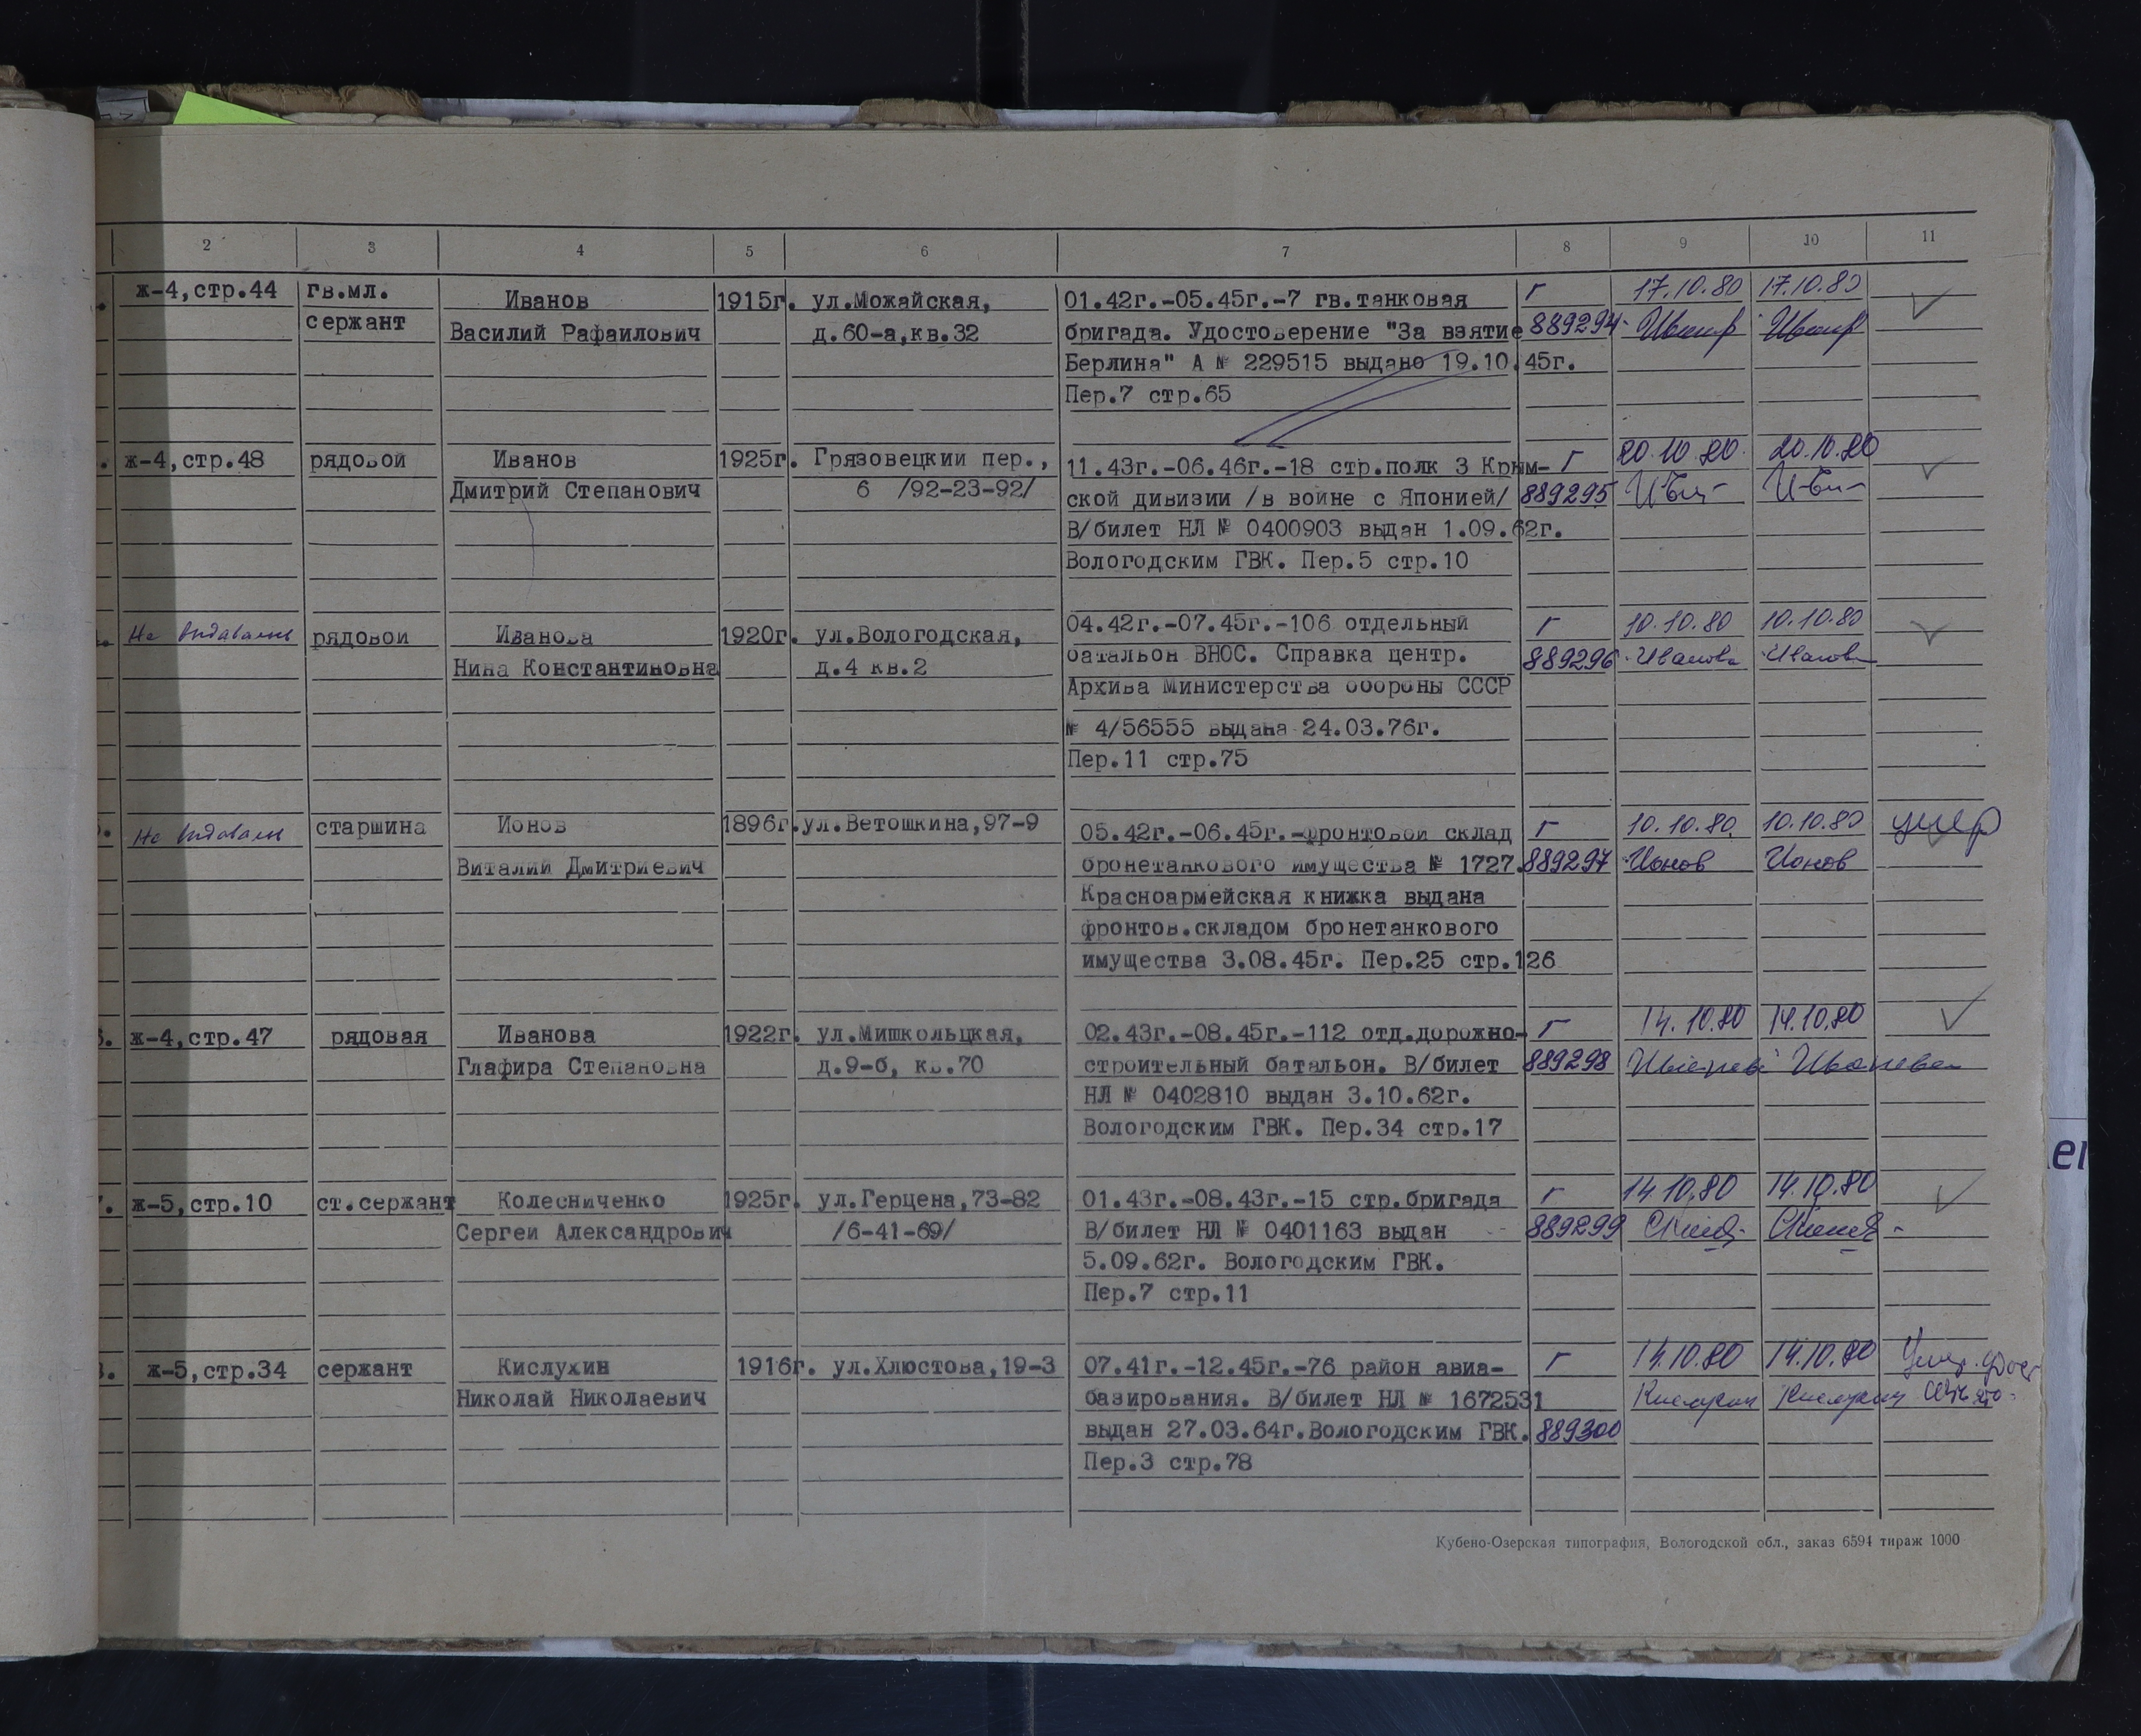 2 3 4 5 6 7 8 9 10 11
ж-4,стр.44 гв.мл. Иванов 1915г. ул.Можайская, 01.42г.-05.45г.-7 гв.танковая г 17.10.80 17.10.80
сержант Василий Рафаилович д.60-а,кв.32 бригада. Удостоверение "За взятие 889294
Берлина" А № 229515 выдано 19.10.45г.
Пер.7 стр.65
ж-4,стр.48 рядовой Иванов 1925г. Грязовецкий пер., 11.43г.-06.46г.-18 стр.полк 3 Крым- г 20.10.80. 20.10.80
Дмитрий Степанович 6 /92-23-92/ ской дивизии /в войне с Японией/ 889295
В/билет НЛ № 0400903 выдан 1.09.62г.
Вологодским ГВК. Пер.5 стр.10
Не выдавалась рядовой Иванова 1920г. ул.Вологодская, 04.42г.-07.45г.-106 отдельный г 10.10.80 10.10.80
Нина Константиновна д.4 кв.2 батальон ВНОС. Справка центр. 889296 Иванова Иванова
Архива Министерства обороны СССР
№ 4/56555 выдана 24.03.76г.
Пер.11 стр.75
старшина Ионов 1896г. ул.Ветошкина,97-9 05.42г.-06.45г.-фронтовой склад г 10.10.80. 10.10.80 умер
Виталий Дмитриевич бронетанкового имущества № 1727. 889297 Ионов Ионов
Красноармейская книжка выдана
фронтов.складом бронетанкового
имущества 3.08.45г. Пер.25 стр.126
ж-4,стр.47 рядовая Иванова 1922г. ул.Мишкольцкая, 02.43г.-08.45г.-112 отд.дорожно- г 14.10.80 14.10.80
Глафира Степановна д.9-б, кв.70 строительный батальон. В/билет 889298
НЛ № 0402810 выдан 3.10.62г.
Вологодским ГВК. Пер.34 стр.17
7. ж-5,стр.10 ст.сержант Колесниченко 1925г. ул.Герцена,73-82 01.43г.-08.43г.-15 стр.бригада г 14.10.80 14.10.80
Сергей Александрович /6-41-69/ В/билет НЛ № 0401163 выдан 889299
5.09.62г. Вологодским ГВК.
Пер.7 стр.11
ж-5,стр.34 сержант Кислухин 1916г. ул.Хлюстова,19-3 07.41г.-12.45г.-76 район авиа- г 14.10.80 14.10.80
Николай Николаевич базирования. В/билет НЛ № 1672531 Кислухин Кислухин
выдан 27.03.64г.Вологодским ГВК. 889300
Пер.3 стр.78
Кубено-Озерская типография, Вологодской обл., заказ 6594 тираж 1000